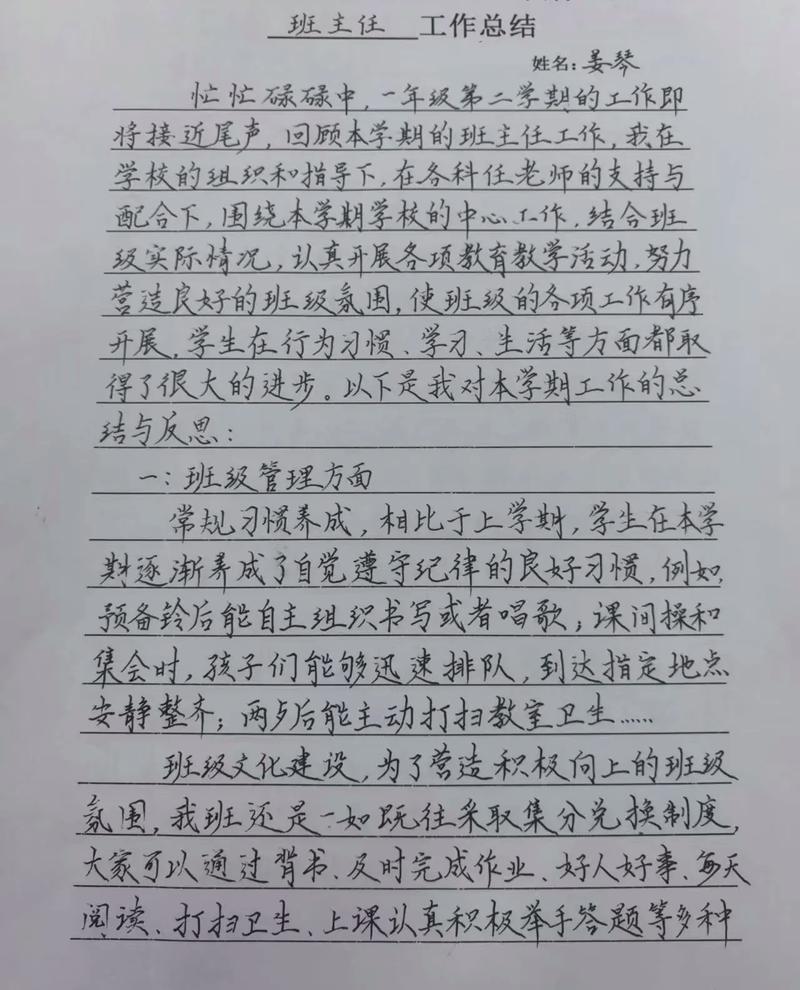 班主任 工作总结
姓名：姜琴
忙忙碌碌中，一年级第二学期的工作即
将接近尾声，回顾本学期的班主任工作，我在
学校的组织和指导下，在各科任老师的支持与
配合下，围绕本学期学校的中心工作，结合班
级实际情况，认真开展各项教育教学活动，努力
营造良好的班级氛围，使班级的各项工作有序
开展，学生在行为习惯、学习、生活等方面都取
得了很大的进步。以下是我对本学期工作的总
结与反思：
一：班级管理方面
常规习惯养成，相比于上学期，学生在本学
期逐渐养成了自觉遵守纪律的良好习惯，例如，
预备铃后能自主组织书写或者唱歌；课间操和
集会时，孩子们能够迅速排队，到达指定地点
安静整齐；两步后能主动打扫教室卫生……
班级文化建设，为了营造积极向上的班级
氛围，我班还是一如既往采取集分兑换制度，
大家可以通过背书、及时完成作业、好人好事、每天
阅读、打扫卫生、上课认真积极举手答题等多种